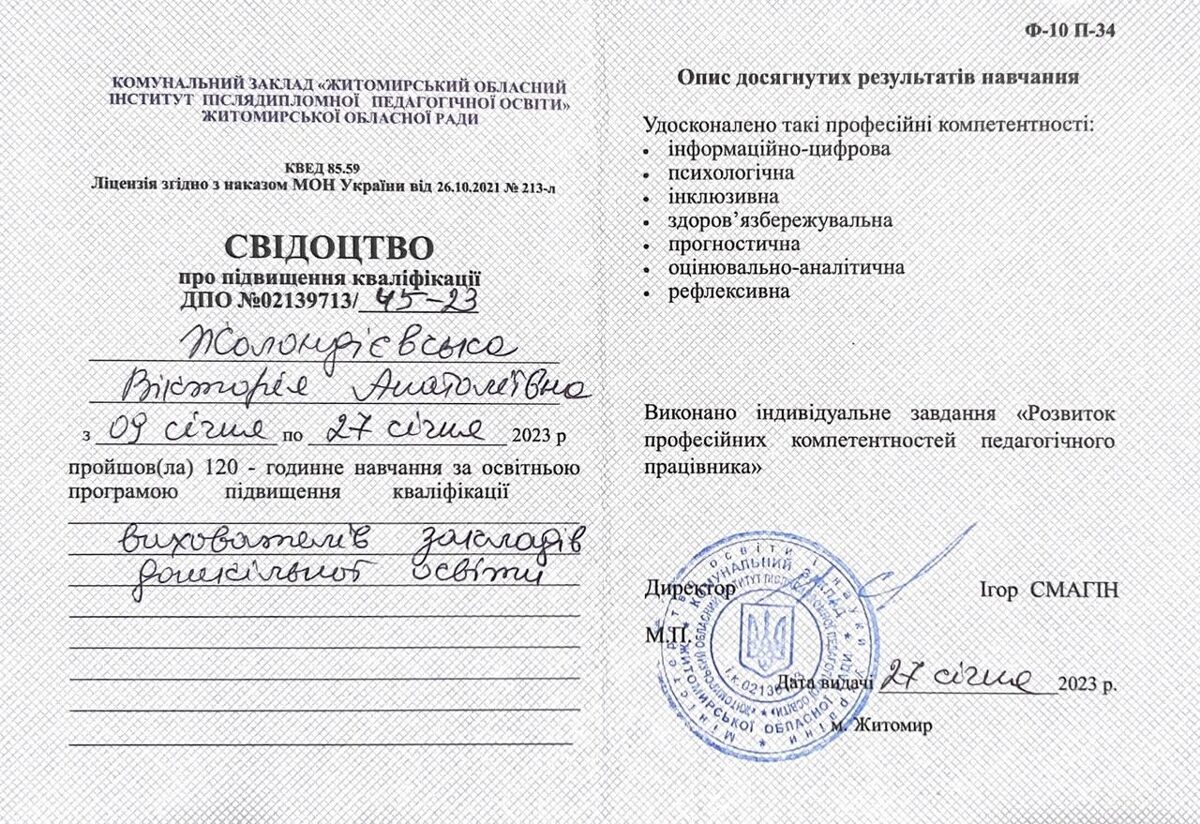 КОМУНАЛЬНИЙ ЗАКЛАД «ЖИТОМИРСЬКИЙ ОБЛАСНИЙ
ІНСТИТУТ ПІСЛЯДИПЛОМНОЇ ПЕДАГОГІЧНОЇ ОСВІТИ»
ЖИТОМИРСЬКОЇ ОБЛАСНОЇ РАДИ
КВЕД 85.59
Ліцензія згідно з наказом МОН України від 26.10.2021 № 213-л
СВІДОЦТВО
про підвищення кваліфікації
ДПО №02139713/ 45-23
Жолондієвська
Вікторія Анатоліївна
з 09 січня по 27 січня 2023 р
пройшов(ла) 120 - годинне навчання за освітньою
програмою підвищення кваліфікації
вихователів закладів
дошкільної освіти
Ф-10 П-34
Опис досягнутих результатів навчання
Удосконалено такі професійні компетентності:
• інформаційно-цифрова
• психологічна
• інклюзивна
• здоров’язбережувальна
• прогностична
• оцінювально-аналітична
• рефлексивна
Виконано індивідуальне завдання «Розвиток
професійних компетентностей педагогічного
працівника»
Директор Ігор СМАГІН
М.П.
Дата видачі 27 січня 2023 р.
м. Житомир
Міністерство освіти і науки України
КОМУНАЛЬНИЙ ЗАКЛАД
ЖИТОМИРСЬКОЇ ОБЛАСНОЇ РАДИ